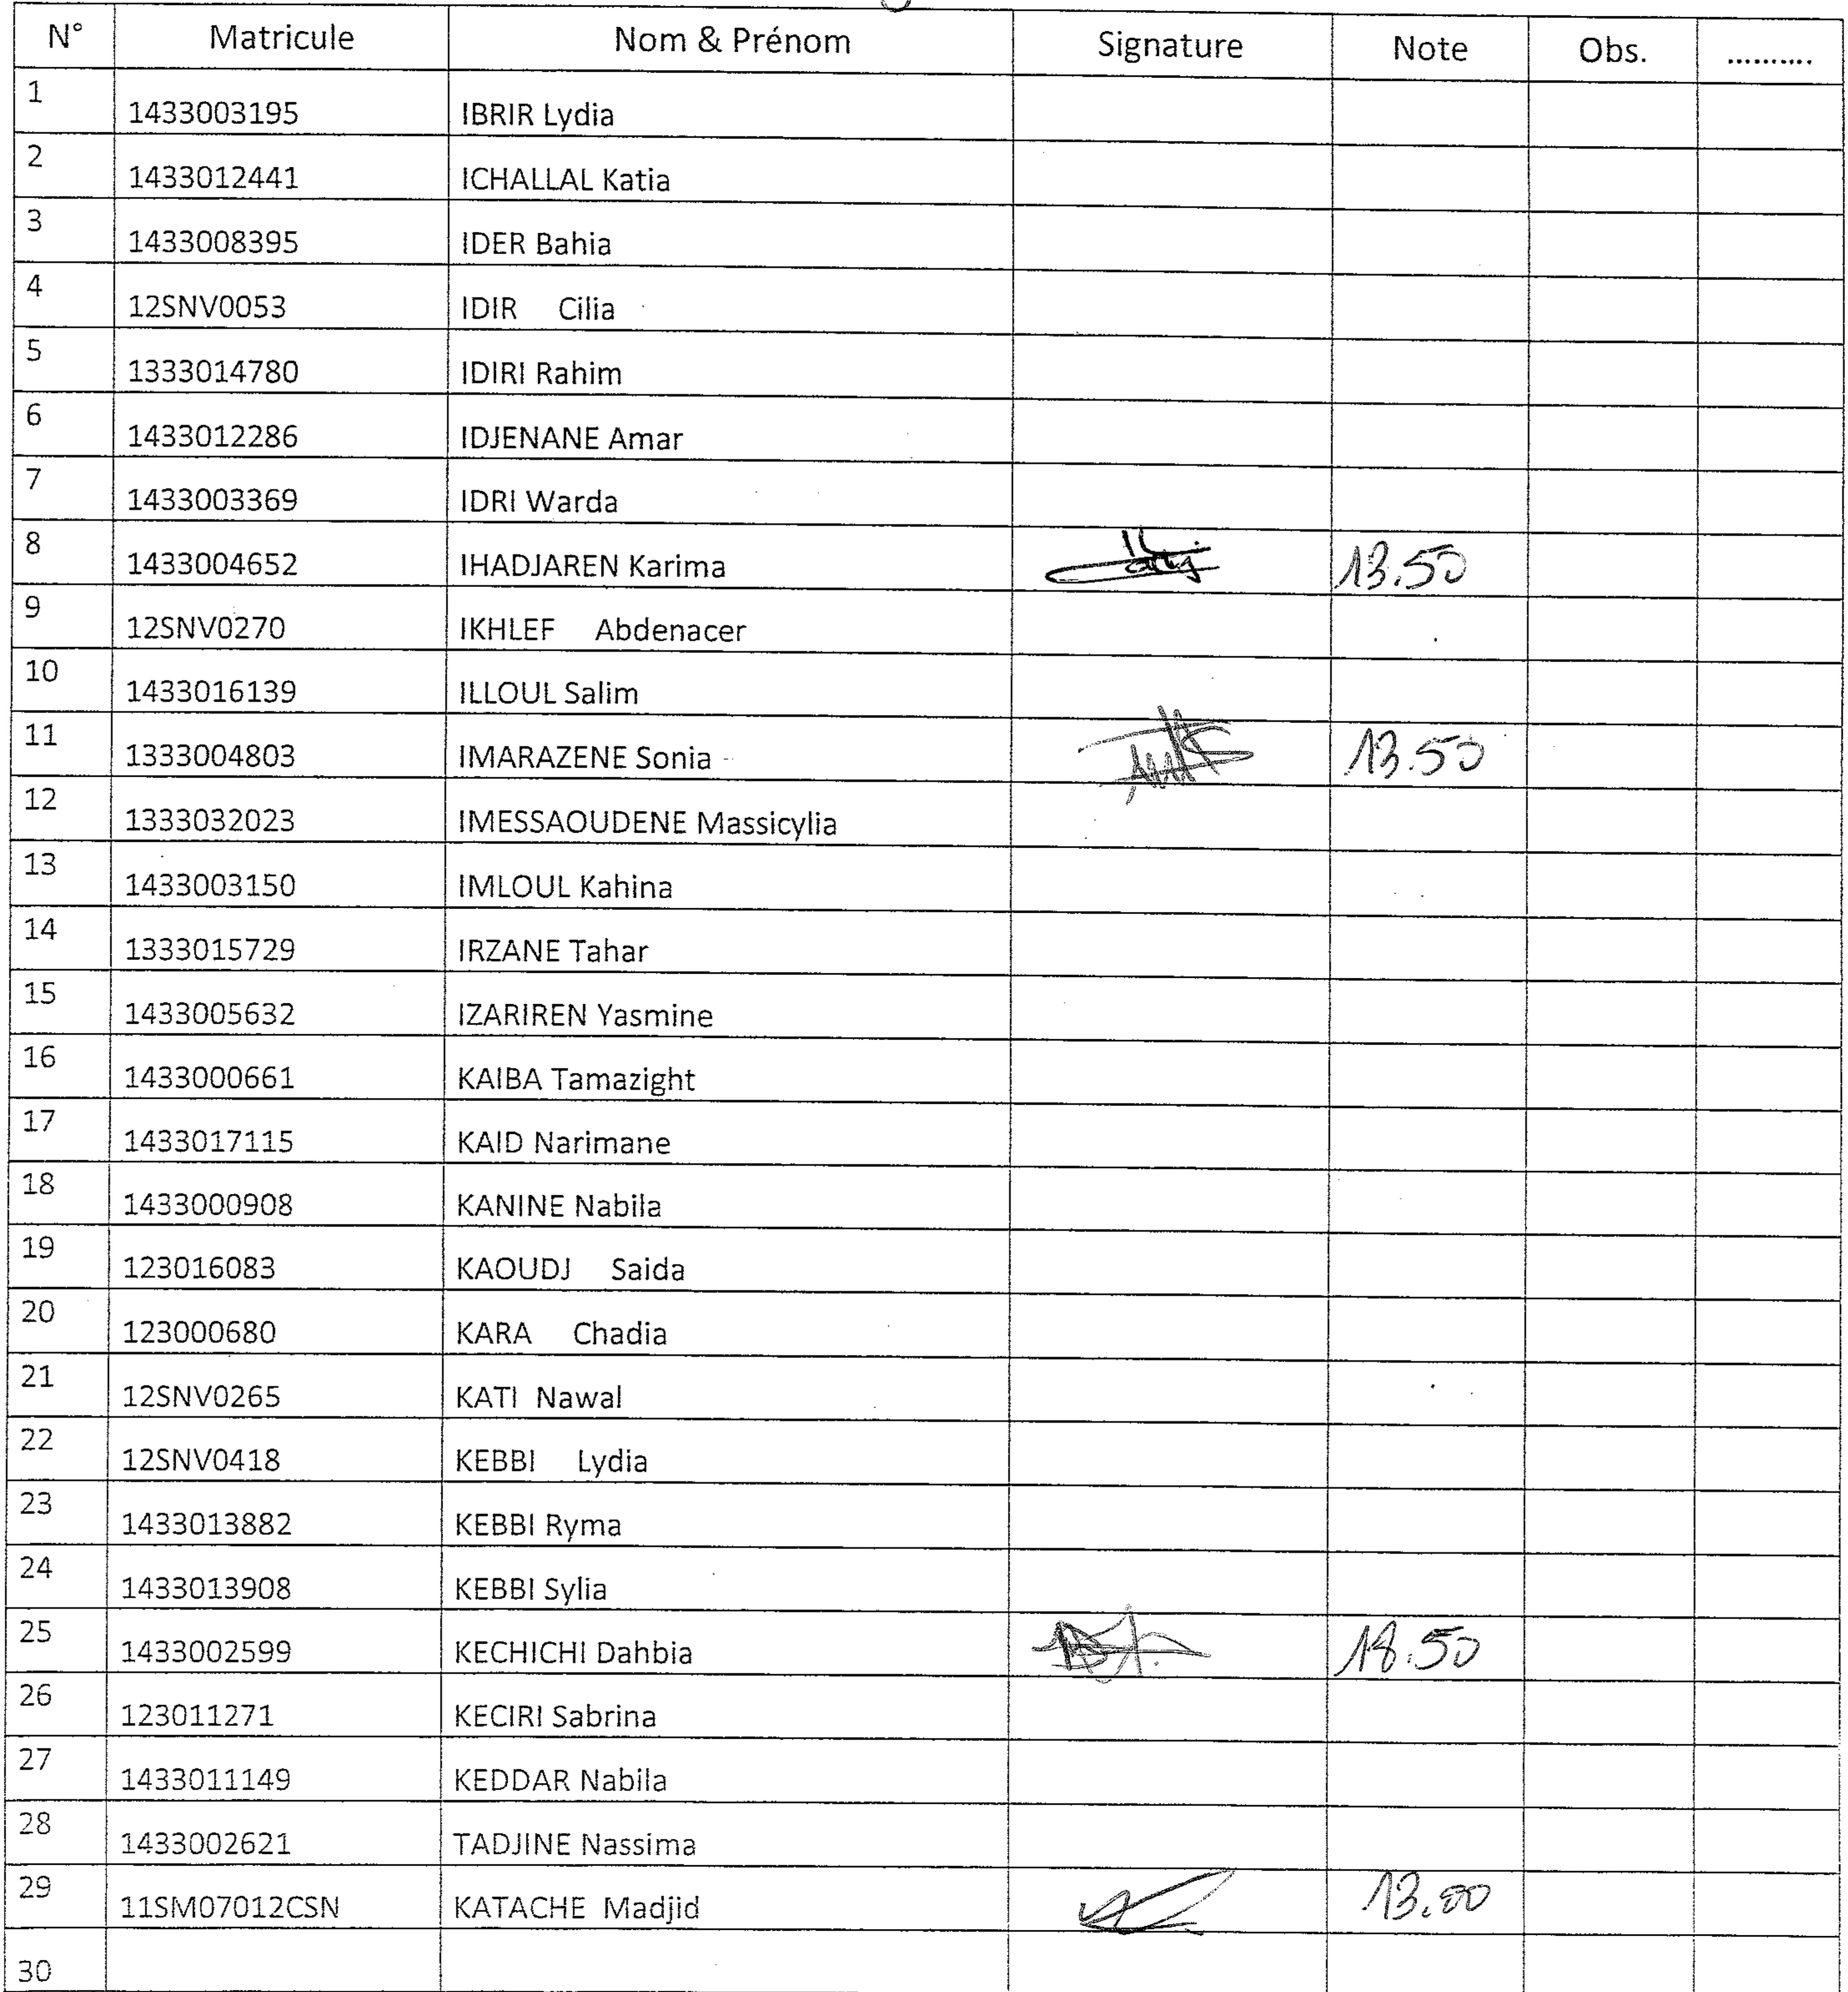 N° Matricule Nom & Prénom Signature Note Obs. ..........
1 1433003195 IBRIR Lydia
2 1433012441 ICHALLAL Katia
3 1433008395 IDER Bahia
4 12SNV0053 IDIR Cilia
5 1333014780 IDIRI Rahim
6 1433012286 IDJENANE Amar
7 1433003369 IDRI Warda
8 1433004652 IHADJAREN Karima 13.50
9 12SNV0270 IKHLEF Abdenacer
10 1433016139 ILLOUL Salim
11 1333004803 IMARAZENE Sonia 13.50
12 1333032023 IMESSAOUDENE Massicylia
13 1433003150 IMLOUL Kahina
14 1333015729 IRZANE Tahar
15 1433005632 IZARIREN Yasmine
16 1433000661 KAIBA Tamazight
17 1433017115 KAID Narimane
18 1433000908 KANINE Nabila
19 123016083 KAOUDJ Saida
20 123000680 KARA Chadia
21 12SNV0265 KATI Nawal
22 12SNV0418 KEBBI Lydia
23 1433013882 KEBBI Ryma
24 1433013908 KEBBI Sylia
25 1433002599 KECHICHI Dahbia
26 123011271 KECIRI Sabrina
27 1433011149 KEDDAR Nabila
28 1433002621 TADJINE Nassima
29 11SM07012CSN KATACHE Madjid
30